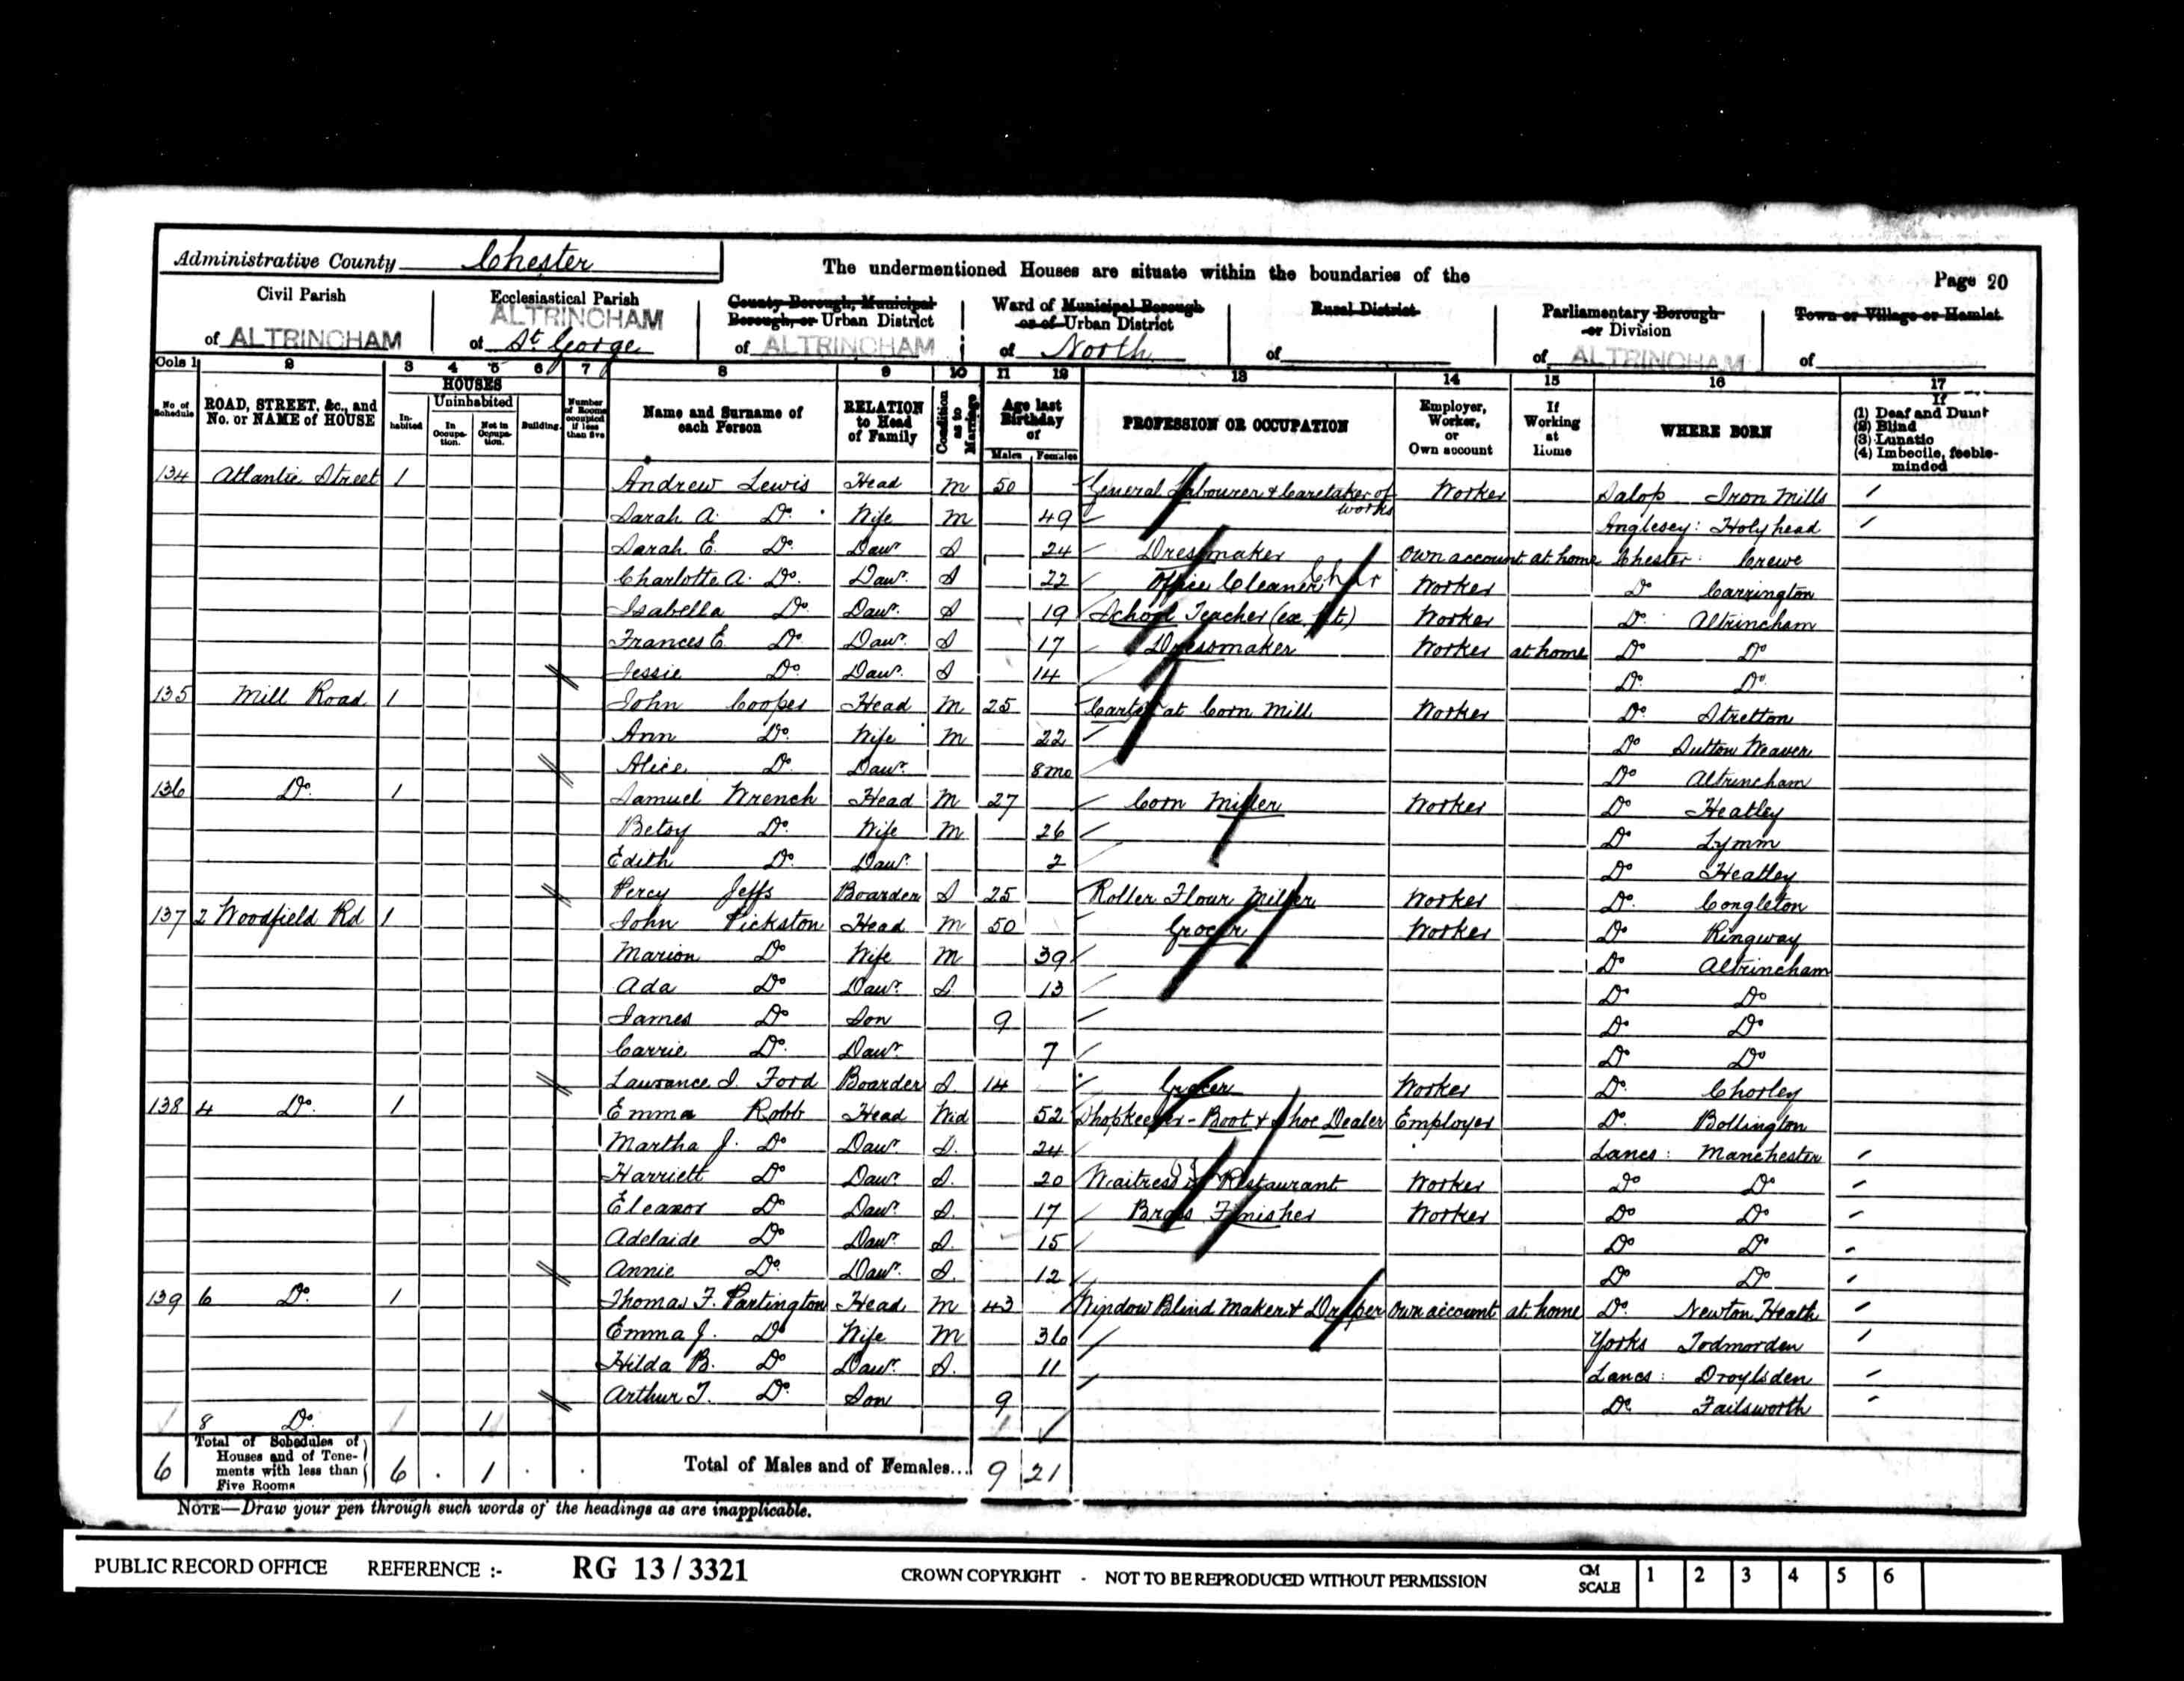 Administrative County Chester
The undermentioned Houses are situate within the boundaries of the
Page 20
Civil Parish of ALTRINCHAM
Ecclesiastical Parish ALTRINCHAM of St. George
County Borough, Municipal Borough, or Urban District of ALTRINCHAM
Ward of Municipal Borough or of Urban District of North
Rural District of
Parliamentary Borough or Division of ALTRINCHAM
Town or Village or Hamlet of
Cols 1 2 3 4 5 6 7 8 9 10 11 12 13 14 15 16 17
No of Schedule
ROAD, STREET, &c., and No. or NAME of HOUSE
HOUSES
In-habited
Uninhabited
In Occupa-tion.
Not in Occupa-tion.
Building.
Number of Rooms occupied if less than five
Name and Surname of each Person
RELATION to Head of Family
Condition as to Marriage
Age last Birthday of
Males Females
PROFESSION OR OCCUPATION
Employer, Worker, or Own account
If Working at Home
WHERE BORN
If (1) Deaf and Dumb (2) Blind (3) Lunatic (4) Imbecile, feeble-minded
134 Atlantic Street 1 Andrew Lewis Head M 50 General Labourer & Caretaker of works Worker Salop Iron Mills
Sarah A. Do. Wife M 49 Anglesey: Holyhead
Sarah E. Do. Daur. S 24 Dressmaker Own account at home Chester: Crewe
Charlotte A. Do. Daur. S 22 Office Cleaner Char Worker Do Carrington
Isabella Do. Daur. S 19 School Teacher (ex P.t) Worker Do. Altrincham
Frances E Do. Daur. S 17 Dressmaker Worker at home Do Do
Jessie Do. Daur. S 14 Do. Do.
135 Mill Road 1 John Cooper Head M 25 Carter at Corn Mill Worker Do. Stretton
Ann Do. Wife M 22 Do Sutton Weaver
Alice Do. Daur. 8 mo Do Altrincham
136 Do. 1 Samuel Wrench Head M 27 Corn Miller Worker Do Heatley
Betsy Do. Wife M 26 Do Lymm
Edith Do. Daur. 2 Do Heatley
Percy Jeffs Boarder S 25 Roller Flour Miller Worker Do. Congleton
137 2 Woodfield Rd 1 John Pickston Head M 50 Grocer Worker Do Ringway
Marion Do Wife M 39 Do Altrincham
Ada Do Daur. S. 13 Do Do
James Do Son 9 Do Do
Carrie Do. Daur. 7 Do Do
Laurance I. Ford Boarder S. 14 Grocer Worker Do. Chorley
138 4 Do. 1 Emma Robb Head Wid 52 Shopkeeper - Boot & Shoe Dealer Employer Do. Bollington
Martha J. Do Daur. S. 24 Lancs: Manchester
Harriett Do Daur. S. 20 Waitress Restaurant Worker Do Do
Eleanor Do Daur. S. 17 Brass Finisher Worker Do Do
Adelaide Do Daur. S. 15 Do Do
Annie Do. Daur. S. 12 Do Do
139 6 Do. 1 Thomas F. Partington Head M 43 Window Blind Maker & Draper Own account at home Do. Newton Heath
Emma J. Do Wife M 36 Yorks Todmorden
Hilda B. Do Daur. S. 11 Lancs: Droylsden
Arthur T. Do. Son 9 Do. Failsworth
8 Do. 1
6 Total of Schedules of Houses and of Tene-ments with less than Five Rooms 6 . 1 . . Total of Males and of Females... 9 21
NOTE—Draw your pen through such words of the headings as are inapplicable.
PUBLIC RECORD OFFICE REFERENCE :- RG 13 / 3321 CROWN COPYRIGHT - NOT TO BE REPRODUCED WITHOUT PERMISSION CM SCALE 1 2 3 4 5 6